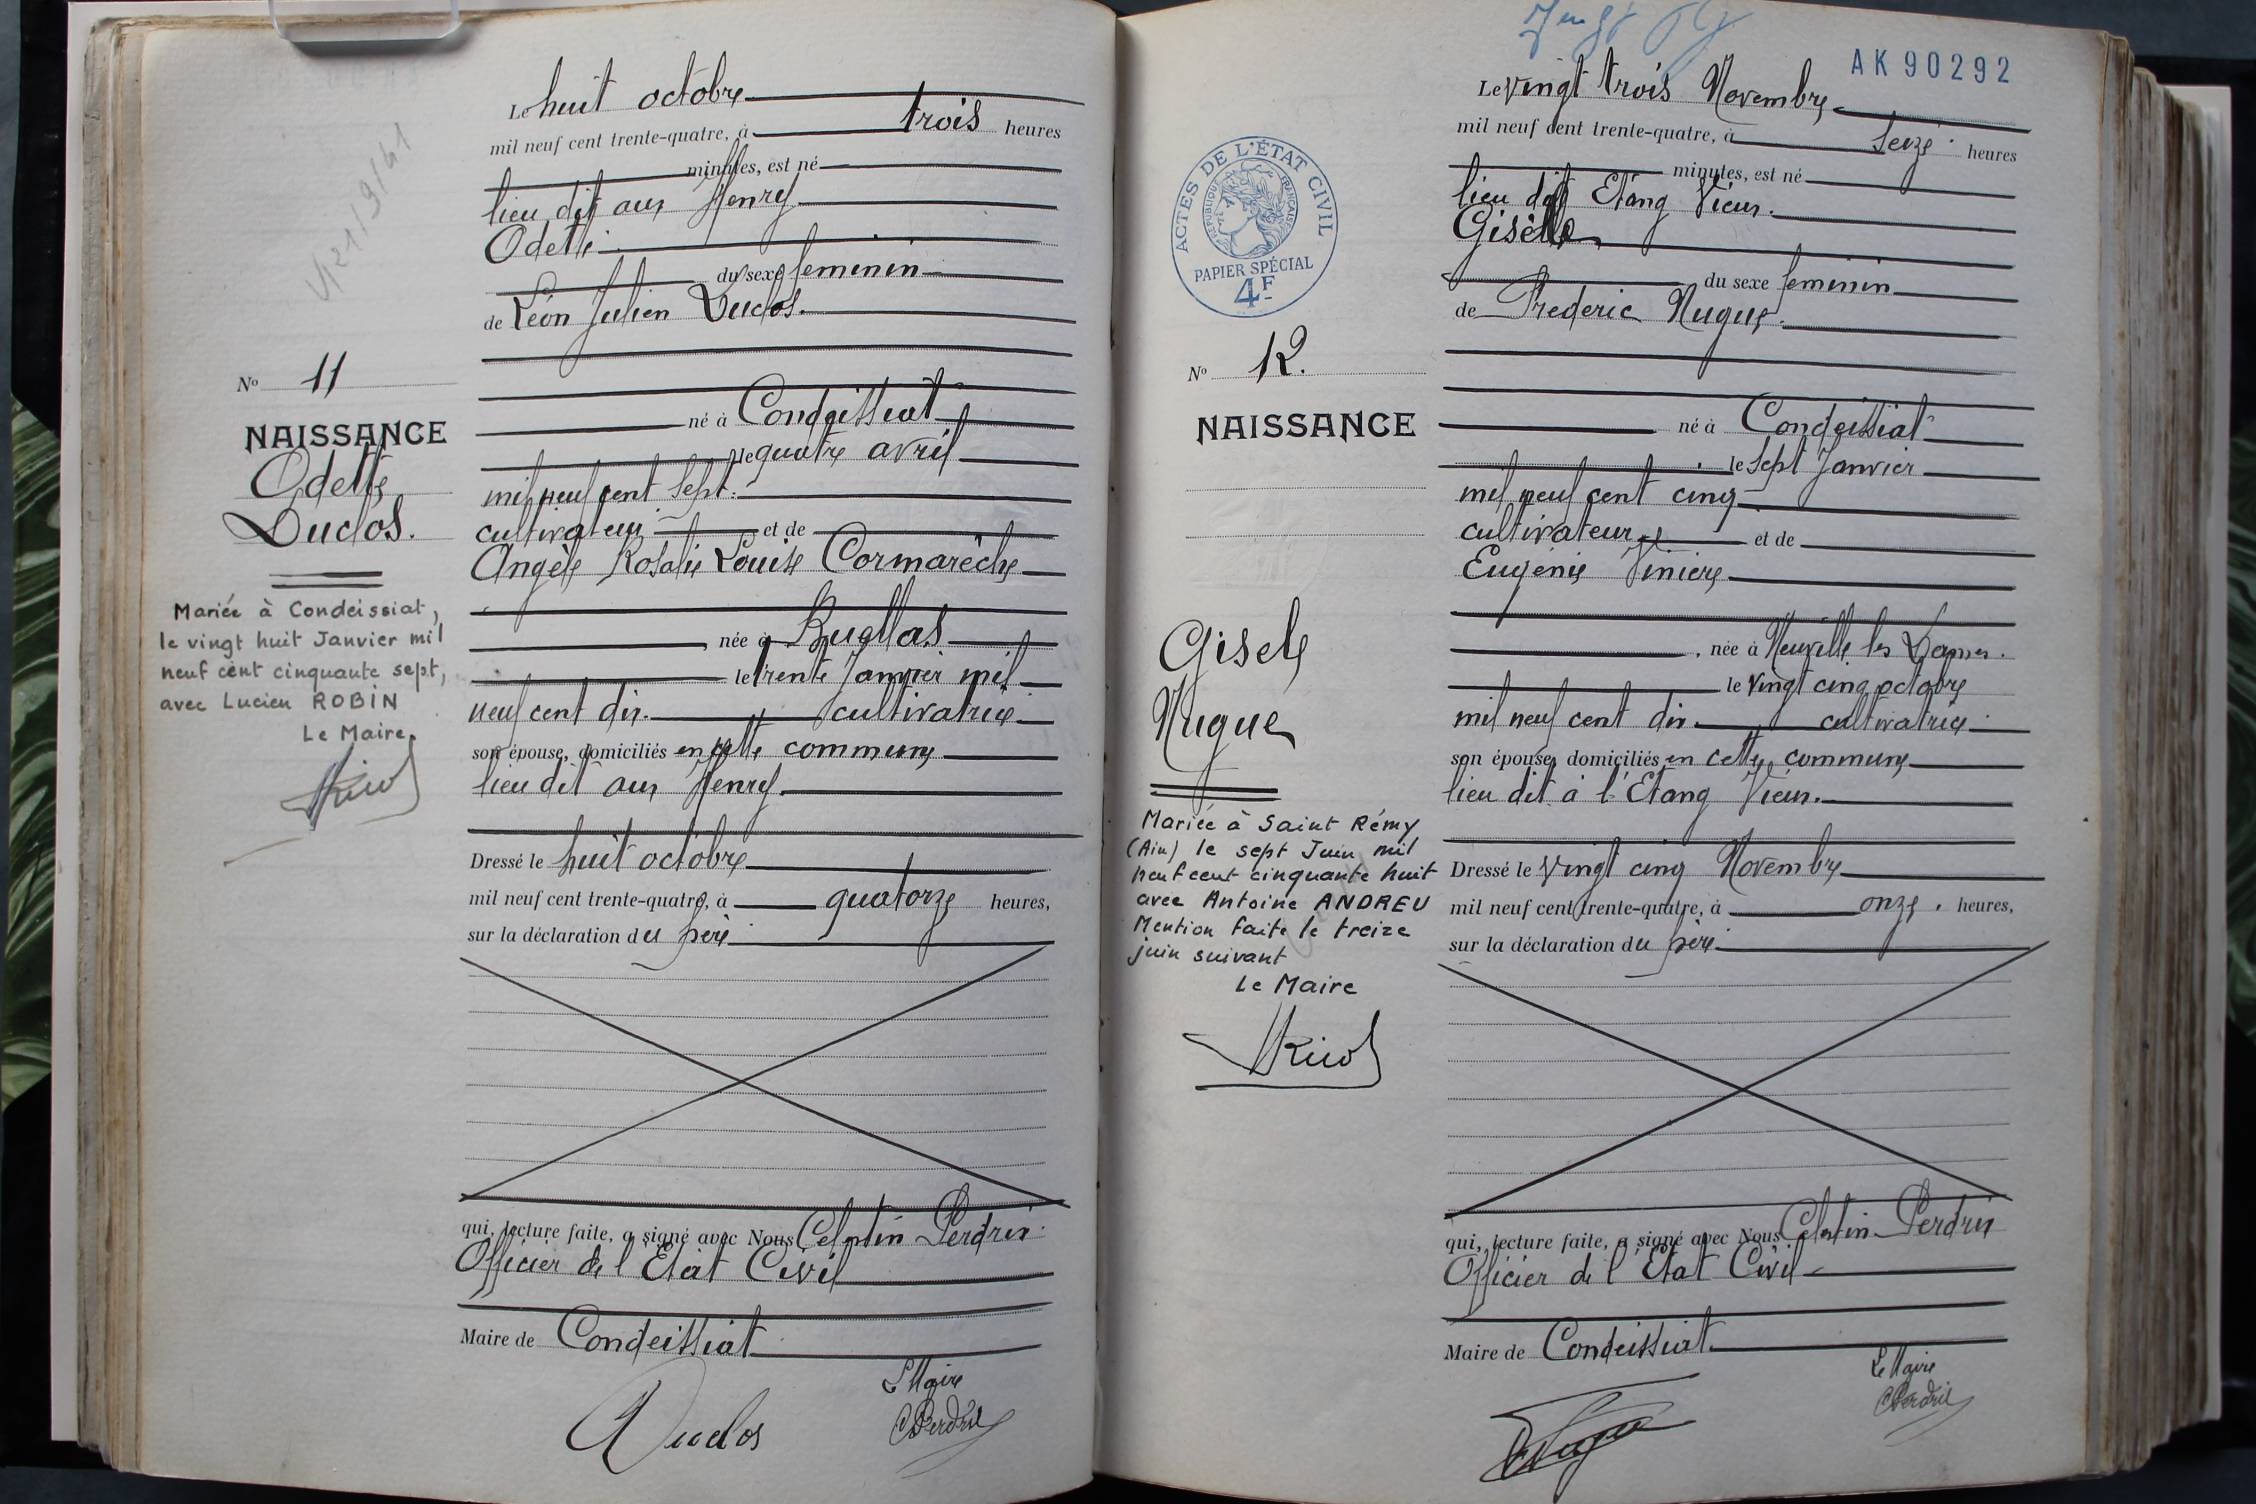 Le huit octobre
mil neuf cent trente-quatre, à trois heures
minutes, est né
lieu dit aux Henry
Odette
du sexe feminin
de Léon Julien Duclos.
né à Condeissiat
le quatre avril
mil neuf cent sept.
cultivateur et de
Angèle Rosalie Louise Cormarèche
née à
le trente Janvier mil
neuf cent dix. cultivatrice
son épouse, domiciliés en cette commune
lieu dit aux Henry
Dressé le huit octobre
mil neuf cent trente-quatre, à quatorze heures,
sur la déclaration du père
qui, lecture faite, a signé avec Nous Celestin Perdrix
Officier de l'Etat Civil
Maire de Condeissiat
Duclos
Le Maire
CPerdrix
No 11
NAISSANCE
Odette
Duclos.
Mariée à Condeissiat,
le vingt huit Janvier mil
neuf cent cinquante sept,
avec Lucien ROBIN
Le Maire.
AK90292
Le vingt trois Novembre
mil neuf cent trente-quatre, à seize heures
minutes, est né
lieu dit Etang Vieux.
Gisèle
du sexe feminin
de Frederic Nugue.
né à Condeissiat
le sept Janvier
mil neuf cent cinq
cultivateur et de
Eugénie
née à Neuville les Dames.
le vingt cinq octobre
mil neuf cent dix. cultivatrice
son épouse, domiciliés en cette commune
lieu dit à l'Etang Vieux.
Dressé le vingt cinq Novembre
mil neuf cent trente-quatre, à onze heures,
sur la déclaration du père
qui, lecture faite, a signé avec Nous Celestin Perdrix
Officier de l'Etat Civil
Maire de Condeissiat.
Le Maire
CPerdrix
ACTES DE L'ÉTAT CIVIL
RÉPUBLIQUE FRANÇAISE
PAPIER SPÉCIAL
4F
No 12.
NAISSANCE
Gisele
Nugue
Mariée à Saint Rémy
(Ain) le sept Juin mil
neuf cent cinquante huit
avec Antoine ANDREU
Mention faite le treize
juin suivant
Le Maire